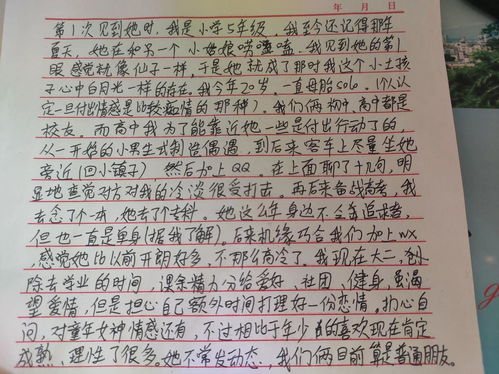 年 月 日
第1次见到她时,我是小学5年级,我至今还记得那年
夏天,她在和另一个小姑娘唠唠嗑,我见到她的第1
眼感觉就像仙子一样,于是她就成了那时我这个小土孩
子心中白月光一样的存在。我今年20岁,一直母胎solo。(个人认
定一旦付出情感是比较痴情的那种)。我们俩初中、高中都是
校友。而高中我为了能靠近她一些是付出行动了的,
从一开始的小男生式制造偶遇,到后来客车上尽量坐她
旁近(回小镇子) 然后加上QQ。在上面聊了十几句,明
显地查觉对方对我的冷淡很受打击。再后来备战高考,我
去念了个一本,她去了个专科。她这么年身边不乏追求者,
但也一直是单身(据我了解)。后来机缘巧合我们加上wx,
感觉她比以前开朗好多,不那么高冷了。我现在大二,刨
除去学业的时间,课余精力分给爱好、社团、健身,虽渴
望爱情,但是担心自己额外时间打理好一份恋情。扪心自
问,对童年女神情感还有,不过相比于年少的喜欢现在肯定
成熟、理性了很多。她不常发动态,我们俩目前算是普通朋友。